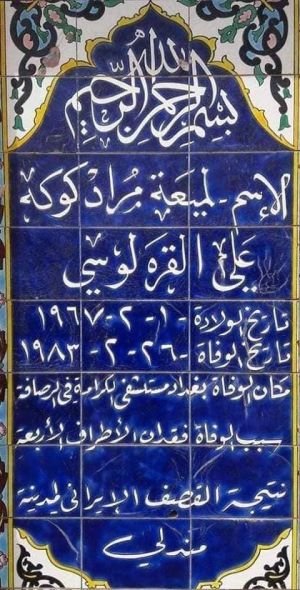 بسم الله الرحمن الرحيم
الإسم - لميعة مراد كوكه
علي القره لوسي
تاريخ الولادة - ١ - ٢ - ١٩٦٧
تاريخ الوفاة - ٢٦ - ٢ - ١٩٨٣
مكان الوفاة بغداد مستشفى الكرامة في الرصافة
سبب الوفاة فقدان الأطراف الأربعة
نتيجة القصف الإيراني لمدينة
مندلي